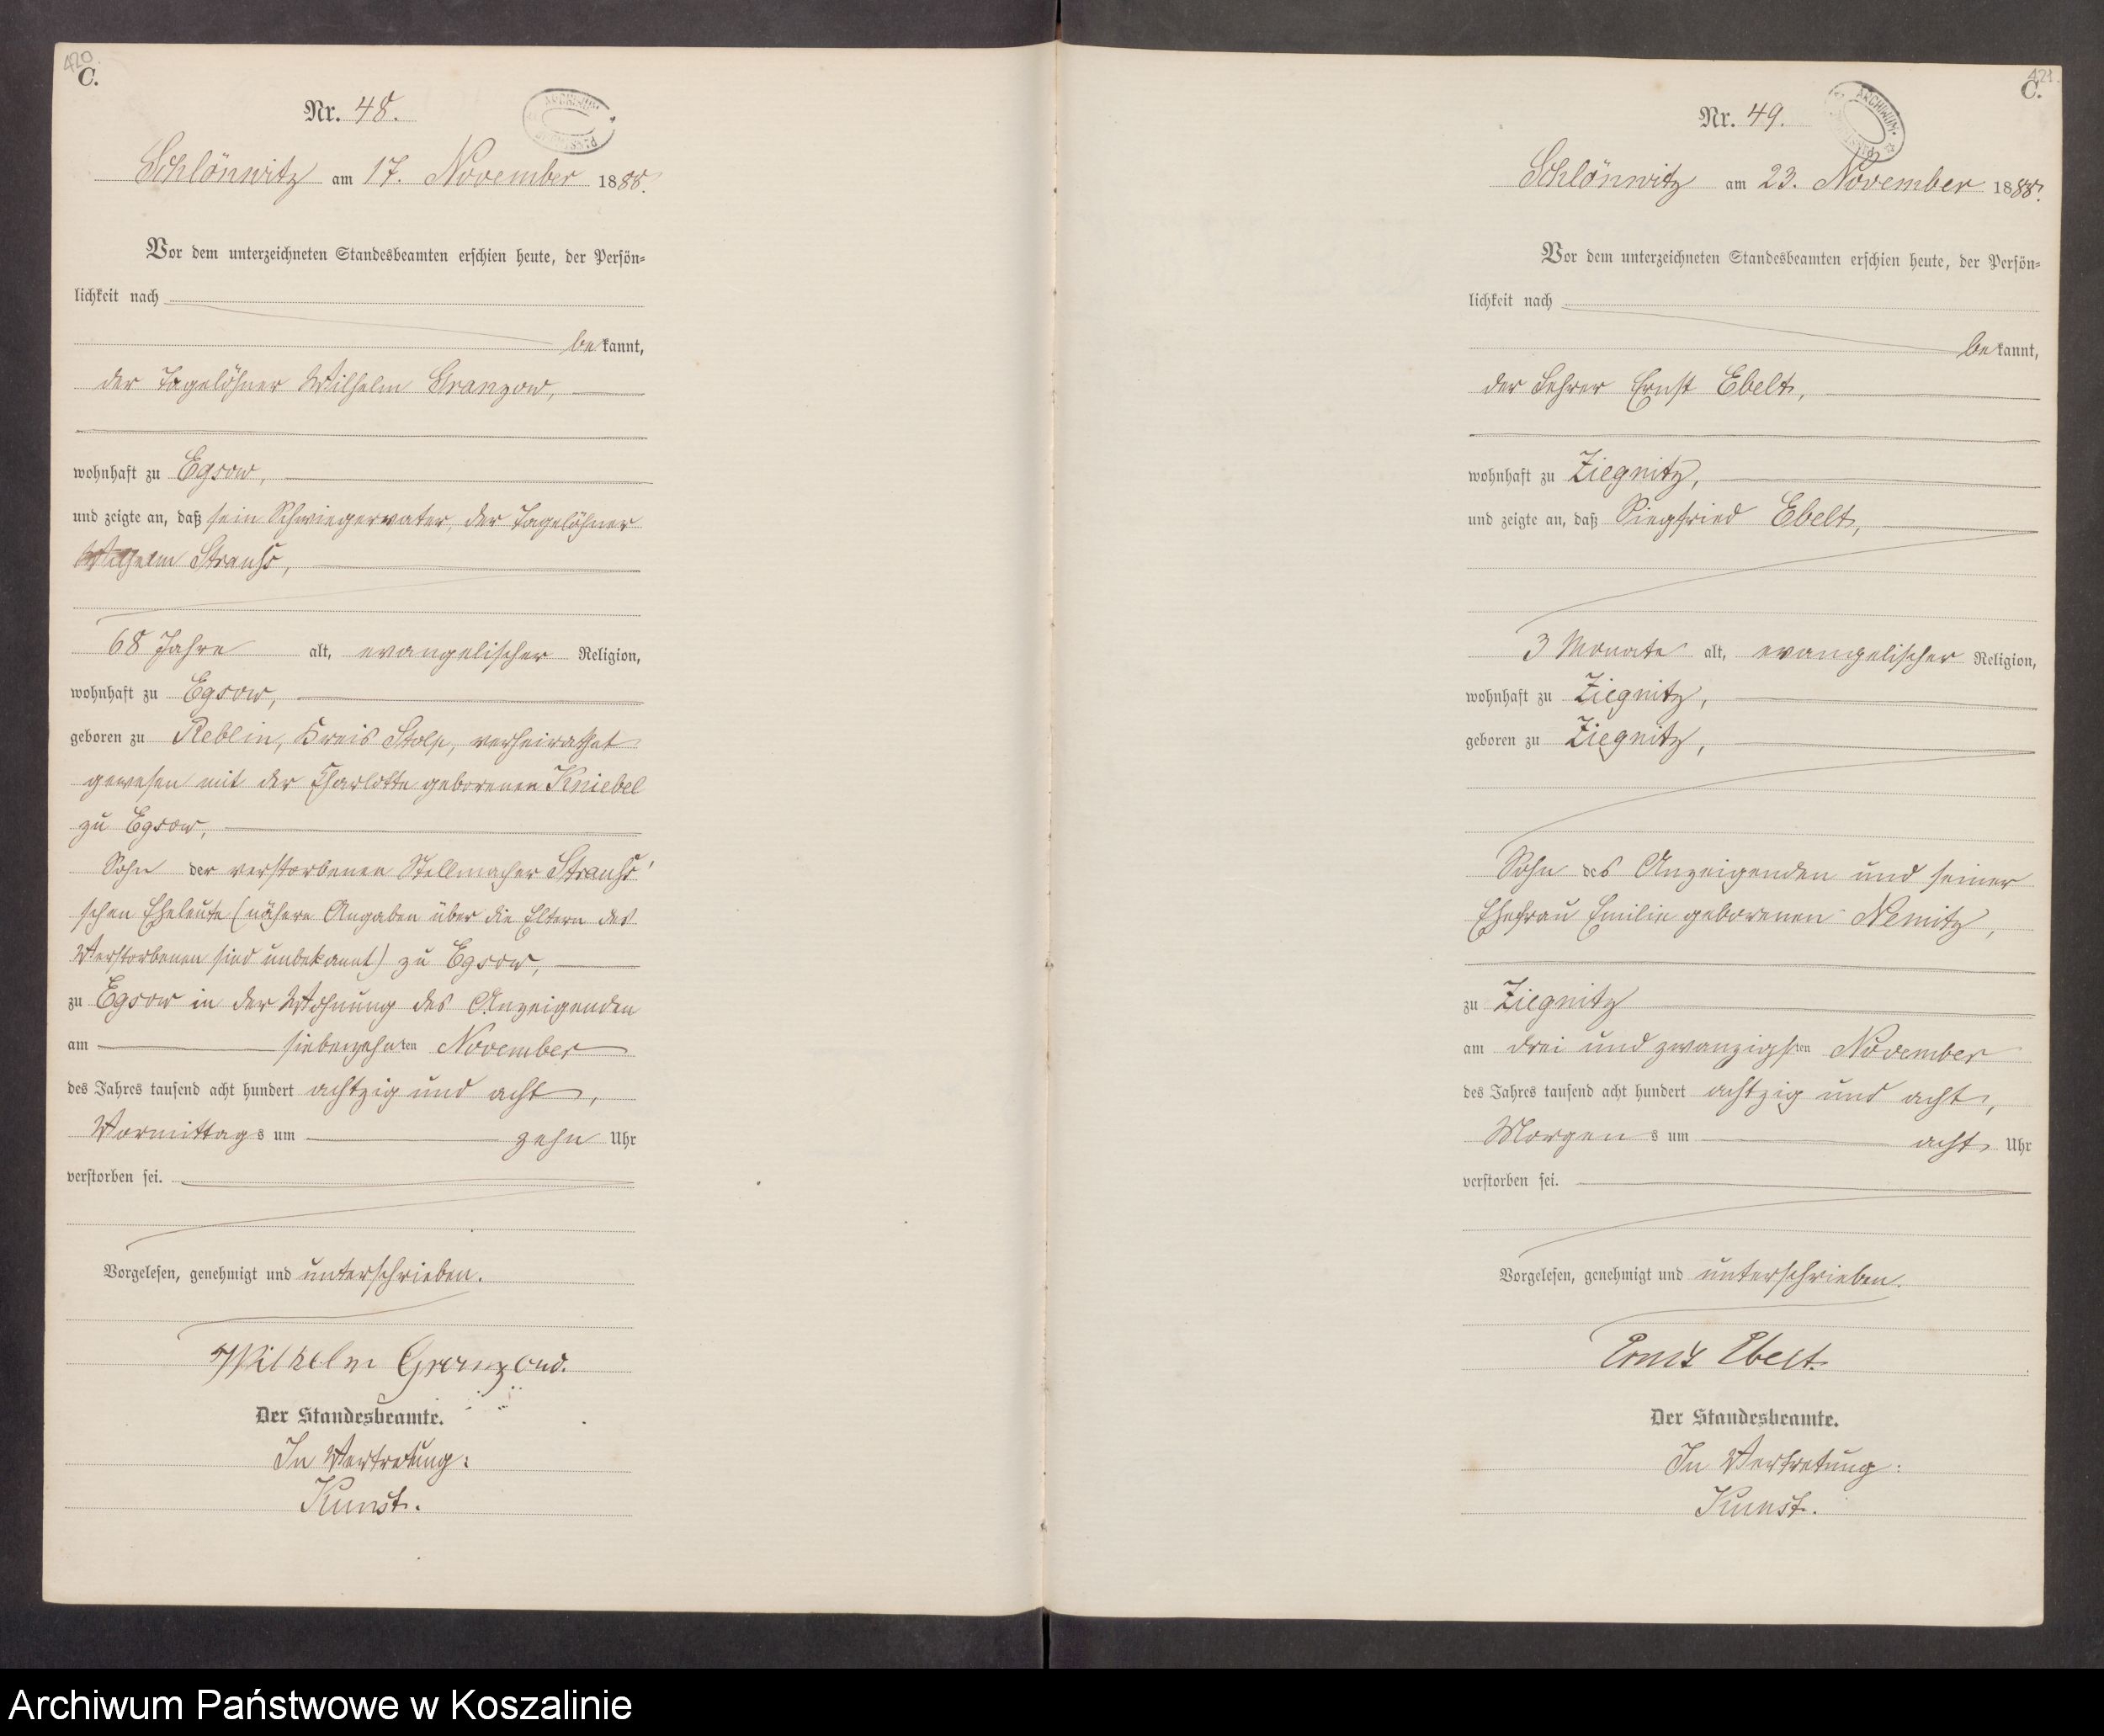 420.
C.
Nr. 48.
ARCHIWUM
Schlönwitz am 17. November 1888.
Vor dem unterzeichneten Standesbeamten erschien heute, der Persön-
lichkeit nach
bekannt,
der Tagelöhner Wilhelm Granzow,
wohnhaft zu Egsow,
und zeigte an, daß sein Schwiegervater, der Tagelöhner
Wilhelm Strauhs,
68 Jahre alt, evangelischer Religion,
wohnhaft zu Egsow,
geboren zu Reblin, Kreis Stolp, verheirathet
gewesen mit der Charlotte geborenen Kniebel
zu Egsow,
Sohn der verstorbenen Stellmacher Strauhs'
schen Eheleute (nähere Angaben über die Eltern des
Verstorbenen sind unbekannt) zu Egsow,
zu Egsow in der Wohnung des Anzeigenden
am siebenzehnten November
des Jahres tausend acht hundert achtzig und acht,
Vormittags um zehn Uhr
verstorben sei.
Vorgelesen, genehmigt und unterschrieben.
Wilhelm Granzow.
Der Standesbeamte.
In Vertretung:
Kunst.
421.
C.
Nr. 49.
ARCHIWUM
Schlönwitz am 23. November 1888.
Vor dem unterzeichneten Standesbeamten erschien heute, der Persön-
lichkeit nach
bekannt,
der Lehrer Ernst Ebelt,
wohnhaft zu Ziegnitz,
und zeigte an, daß Siegfried Ebelt,
3 Monate alt, evangelischer Religion,
wohnhaft zu Ziegnitz,
geboren zu Ziegnitz,
Sohn des Anzeigenden und seiner
Ehefrau Emilie geborenen Nemitz,
zu Ziegnitz
am drei und zwanzigsten November
des Jahres tausend acht hundert achtzig und acht,
Morgens um acht Uhr
verstorben sei.
Vorgelesen, genehmigt und unterschrieben.
Ernst Ebelt.
Der Standesbeamte.
In Vertretung:
Kunst.
Archiwum Państwowe w Koszalinie